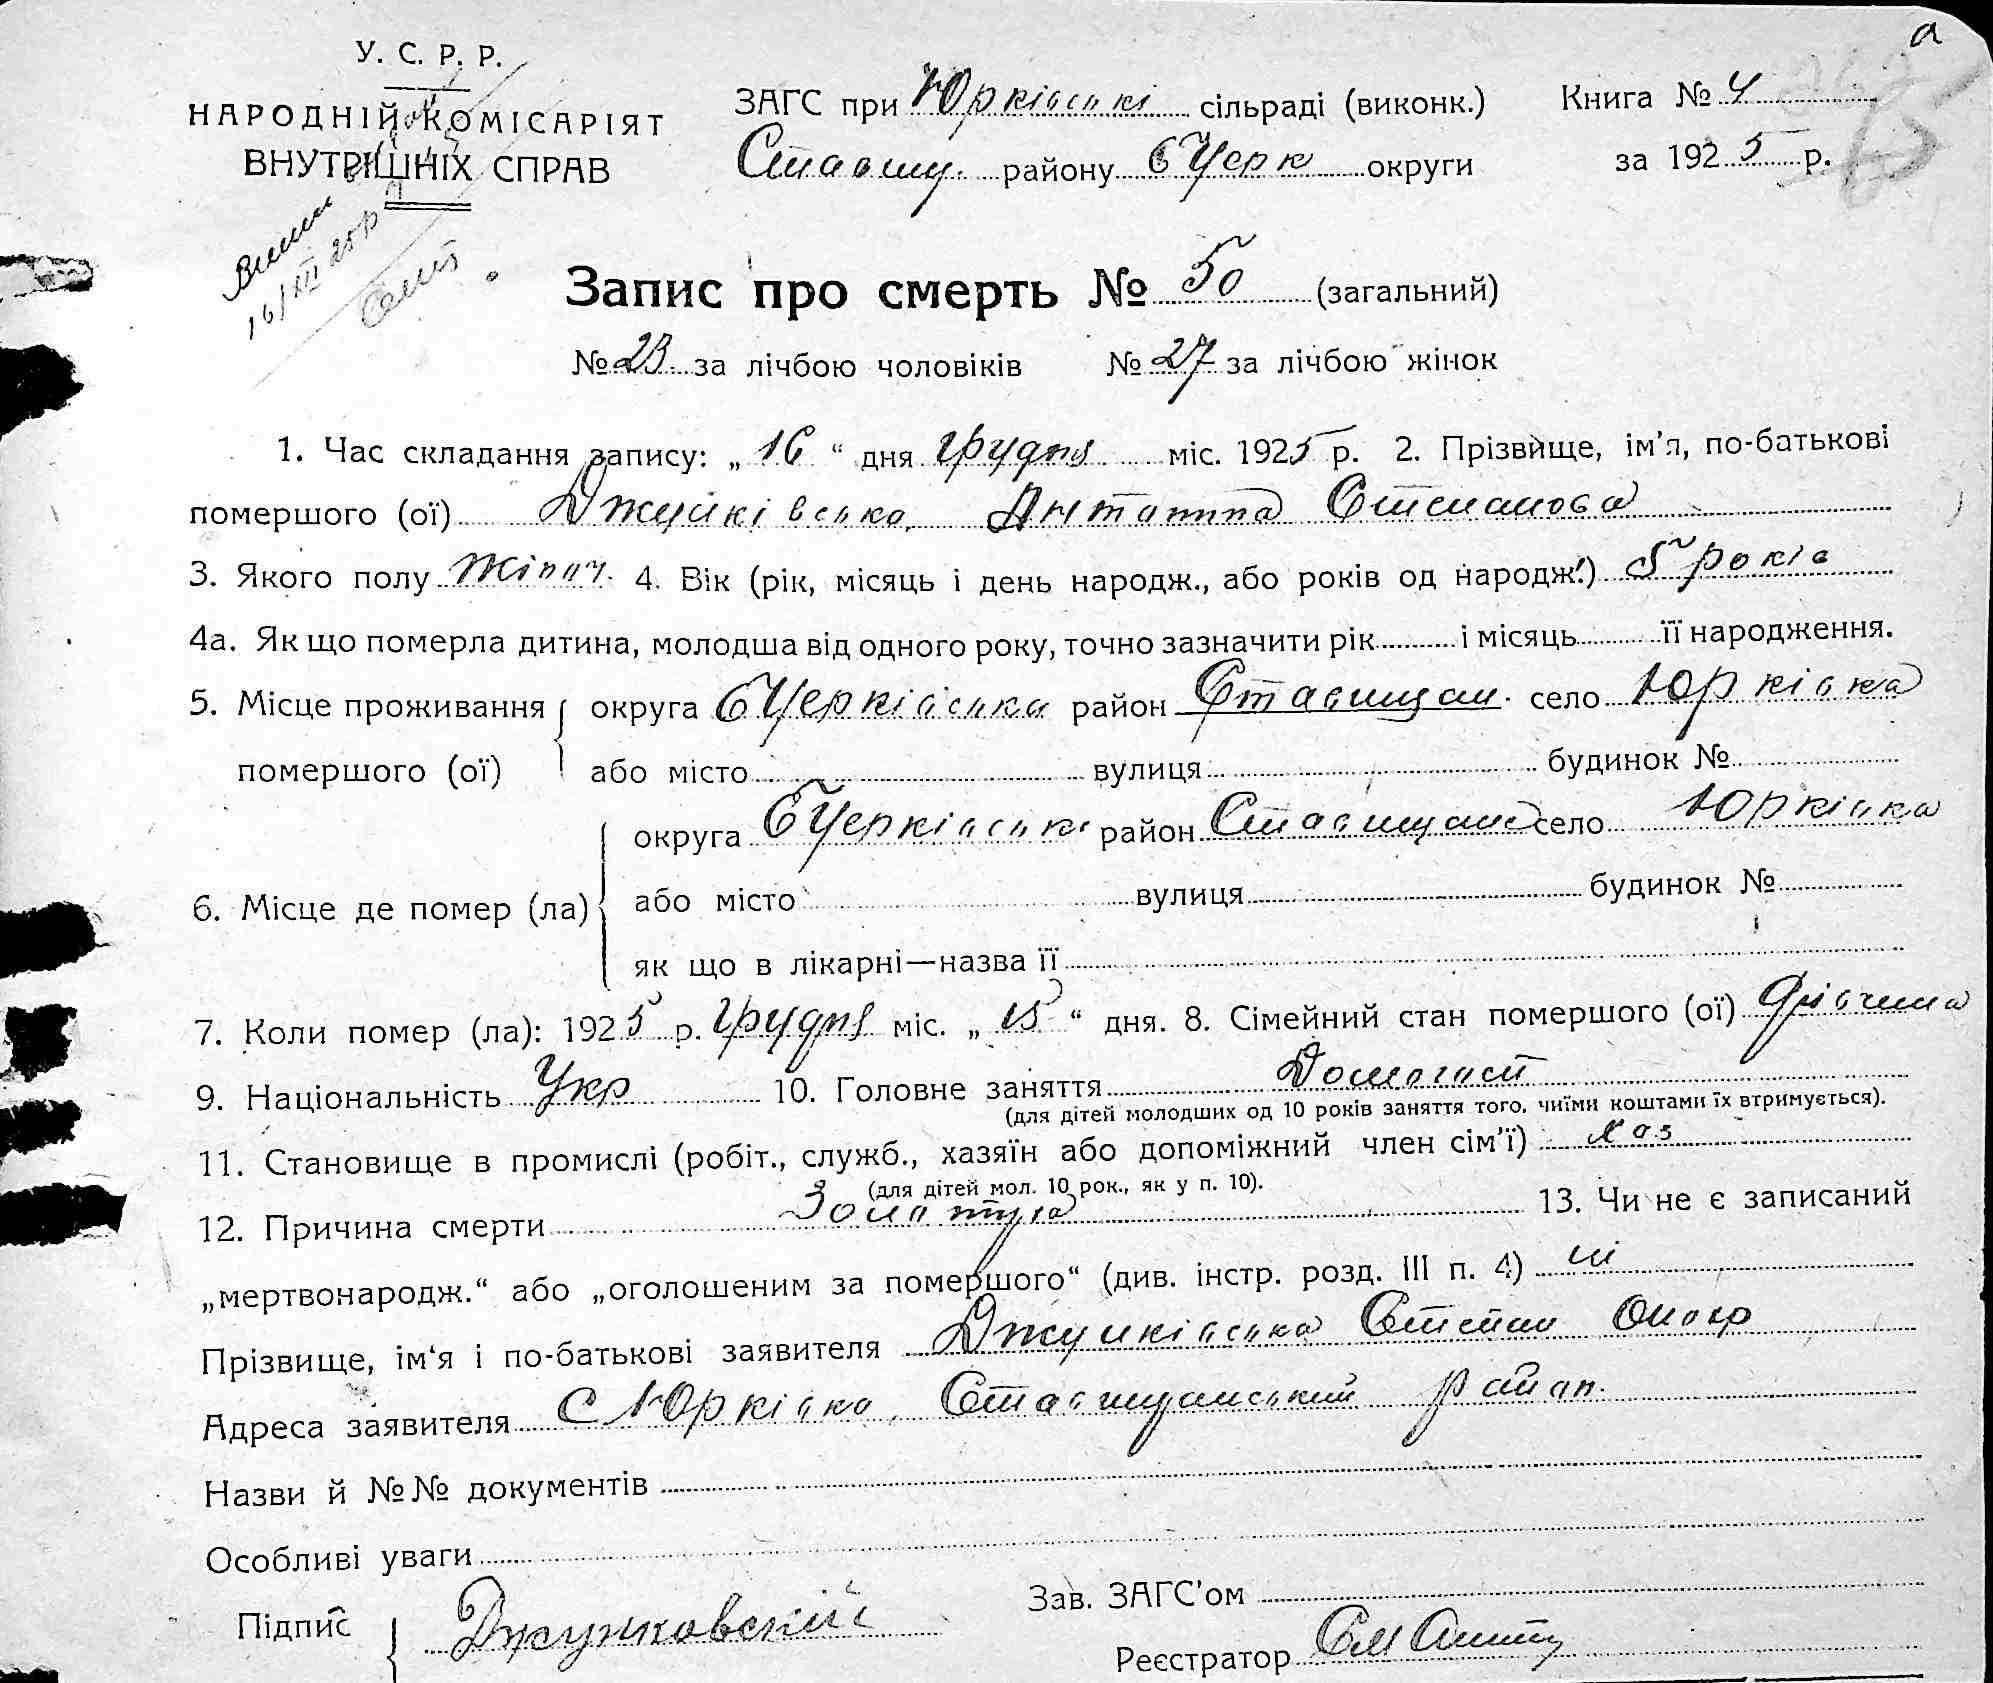 а
У. С. Р. Р.
НАРОДНІЙ КОМІСАРІЯТ
ВНУТРІШНІХ СПРАВ
ЗАГС при Юрківські сільраді (виконк.) Книга № 4
Ставищ. району БЦерк округи за 1925 р.
16/XII 25р
Запис про смерть № 50 (загальний)
№ 23 за лічбою чоловіків № 27 за лічбою жінок
1. Час складання запису: „16“ дня грудня міс. 1925 р. 2. Прізвище, ім’я, по-батькові
помершого (ої) Джунківська Антатина Степанова
3. Якого полу жіноч. 4. Вік (рік, місяць і день народж., або років од народж.) 5 років
4а. Як що померла дитина, молодша від одного року, точно зазначити рік і місяць її народження.
5. Місце проживання округа БЦерківська район Ставищан. село Юрківка
помершого (ої) або місто вулиця будинок №
округа БЦерківськ район Ставищан село Юрківка
6. Місце де помер (ла) або місто вулиця будинок №
як що в лікарні—назва її
7. Коли помер (ла): 1925 р. грудня міс. „15“ дня. 8. Сімейний стан помершого (ої) дівчина
9. Національність Укр 10. Головне заняття Домогосп
(для дітей молодших од 10 років заняття того, чиїми коштами їх втримується).
11. Становище в промислі (робіт., служб., хазяїн або допоміжний член сім’ї) хаз
(для дітей мол. 10 рок., як у п. 10).
12. Причина смерти Золотуха 13. Чи не є записаний
„мертвонародж.“ або „оголошеним за помершого“ (див. інстр. розд. III п. 4) ні
Прізвище, ім‘я і по-батькові заявителя Джунківська Степан
Адреса заявителя с Юрківка, Ставищанський район.
Назви й №№ документів
Особливі уваги
Зав. ЗАГС’ом
Підпис Джунковский
Реєстратор